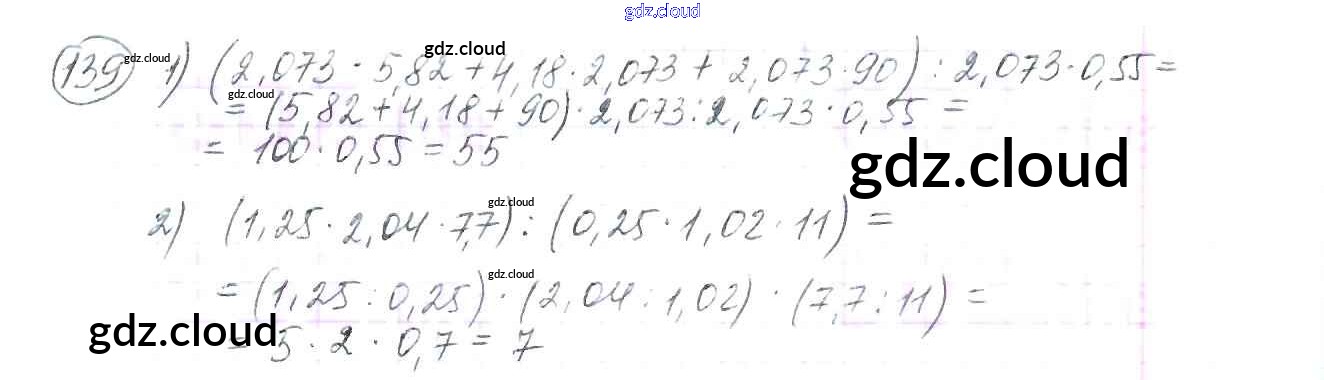 gdz.cloud
139 1) (2,073 · 5,82 + 4,18 · 2,073 + 2,073 · 90) : 2,073 · 0,55 =
= (5,82 + 4,18 + 90) · 2,073 : 2,073 · 0,55 =
= 100 · 0,55 = 55
2) (1,25 · 2,04 · 7,7) : (0,25 · 1,02 · 11) =
= (1,25 : 0,25) · (2,04 : 1,02) · (7,7 : 11) =
= 5 · 2 · 0,7 = 7
gdz.cloud
gdz.cloud
gdz.cloud
gdz.cloud
gdz.cloud
gdz.cloud
gdz.cloud